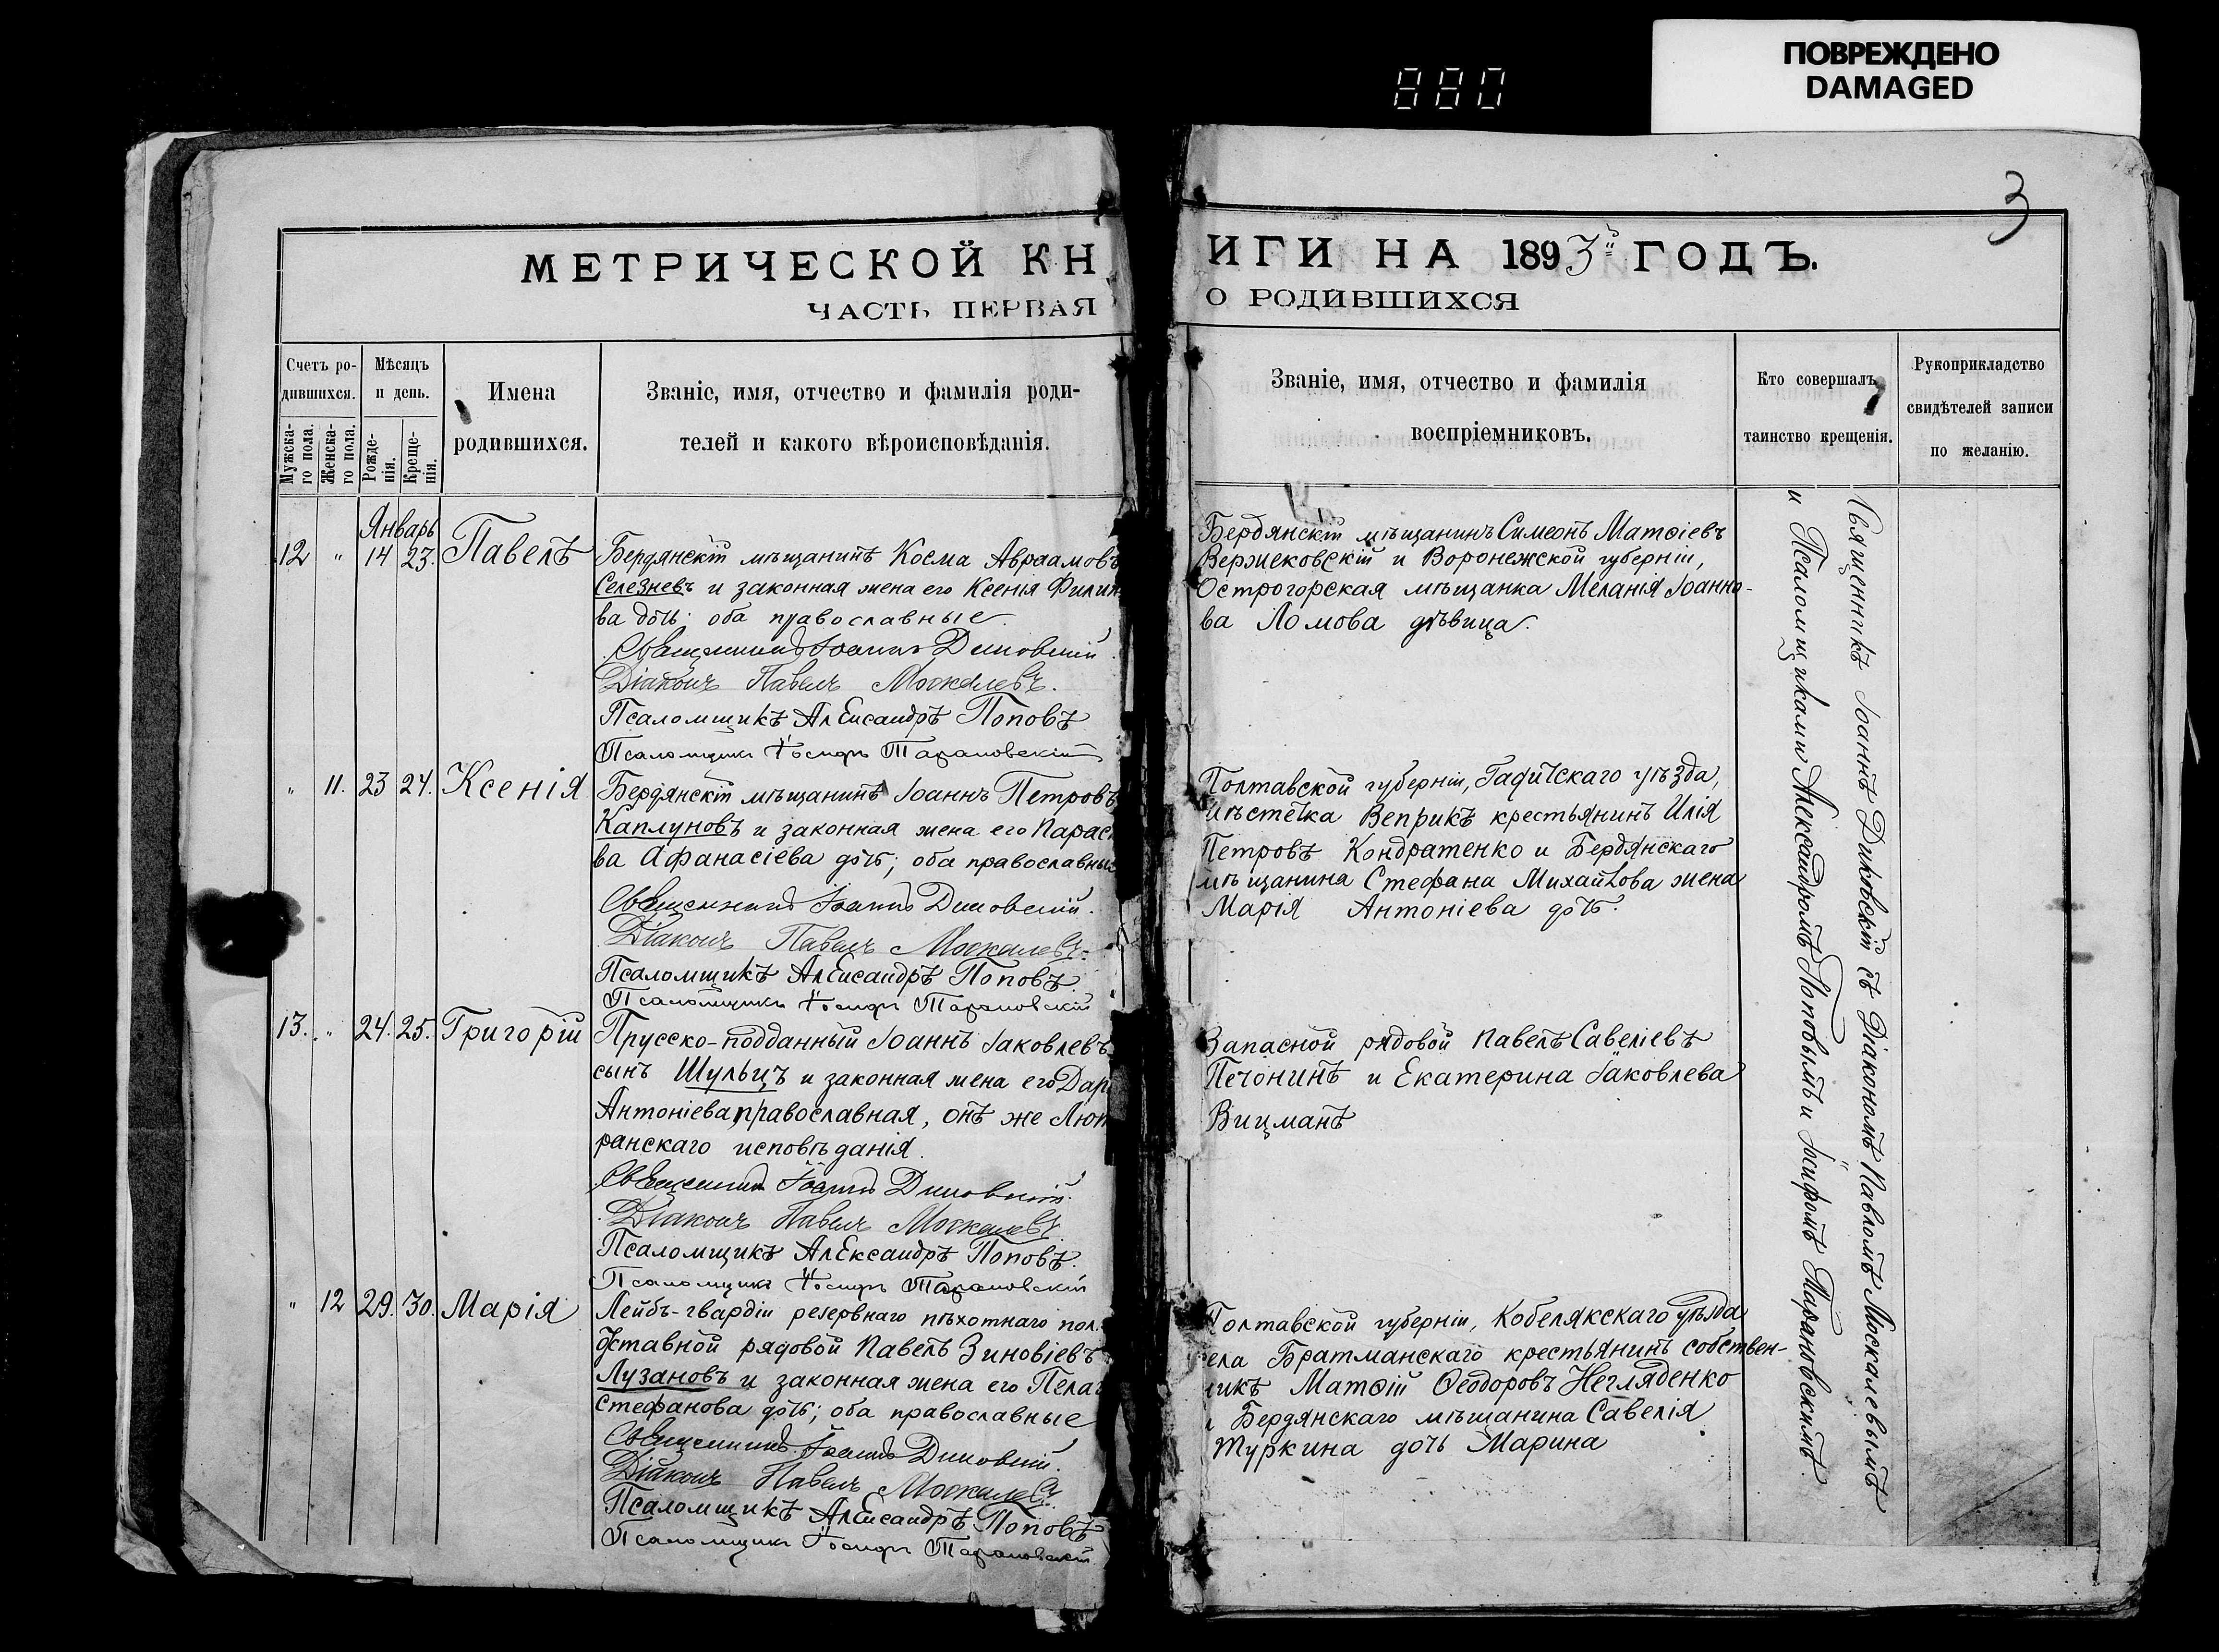 ПОВРЕЖДЕНО
DAMAGED
880
3
МЕТРИЧЕСКОЙ КН
ЧАСТЬ ПЕРВАЯ
Счетъ ро-
дившихся.
Мѣсяцъ
и день.
Имена
родившихся.
Званіе, имя, отчество и фамилія роди-
телей и какого вѣроисповѣданія.
Мужска-
го пола.
Женска-
го пола.
Рожде-
нія.
Креще-
нія.
Январь
12 " 14 23. Павелъ
Бердянскій мѣщанинъ Косма Авраамовъ
Селезневъ и законная жена его Ксенія
ва дочь; оба православные.
Священникъ Іоаннъ
Діаконъ Павелъ Москалевъ.
Псаломщикъ Александръ Поповъ
Псаломщикъ Іосифъ Тарановскій
" 11. 23 24. Ксенія
Бердянскій мѣщанинъ Іоаннъ Петровъ
Каплуновъ и законная жена его Парас
ва Афанасіева дочь; оба православные
Священникъ Іоаннъ
Діаконъ Павелъ Москалевъ.
Псаломщикъ Александръ Поповъ.
Псаломщикъ Іосифъ Тарановскій
13. " 24. 25. Григорій
Прусско-подданный Іоаннъ Іаковлевъ
сынъ Шульцъ и законная жена его Дар
Антоніева православная, онъ же Лют
ранскаго исповѣданія.
Священникъ Іоаннъ
Діаконъ Павелъ Москалевъ
Псаломщикъ Александръ Поповъ.
Псаломщикъ Іосифъ Тарановскій
" 12 29. 30. Марія
Лейбъ-гвардіи резервнаго пѣхотнаго пол.
отставной рядовой Павелъ Зиновіевъ
Лузановъ и законная жена его Пелаг
Стефанова дочь; оба православные
Священникъ Іоаннъ
Діаконъ Павелъ Москалевъ
Псаломщикъ Александръ Поповъ
Псаломщикъ Іосифъ Тарановскій
ИГИ НА 1893й ГОДЪ.
О РОДИВШИХСЯ
Званіе, имя, отчество и фамилія
воспріемниковъ.
Кто совершалъ
таинство крещенія.
Рукоприкладство
свидѣтелей записи
по желанію.
Бердянскій мѣщанинъ Симеонъ Матѳіевъ
Вержековскій и Воронежской губерніи,
Острогорская мѣщанка Меланія Іоанно-
ва Ломова дѣвица.
Полтавской губерніи, Гадячскаго уѣзда,
мѣстечка Веприкъ крестьянинъ Илія
Петровъ Кондратенко и Бердянскаго
мѣщанина Стефана Михайлова жена
Марія Антоніева дочь.
Запасной рядовой Павелъ Савеліевъ
Печонинъ и Екатерина Іаковлева
Вицманъ
Полтавской губерніи, Кобелякскаго уѣзда
села Братманскаго крестьянинъ собствен-
никъ Матѳій Ѳеодоровъ Негляденко
и Бердянскаго мѣщанина Савелія
Туркина дочь Марина
Священникъ Іоаннъ Диковскій съ Діакономъ Павломъ Москалевымъ
и Псаломщиками Александромъ Поповымъ и Іосифомъ Тарановскимъ.